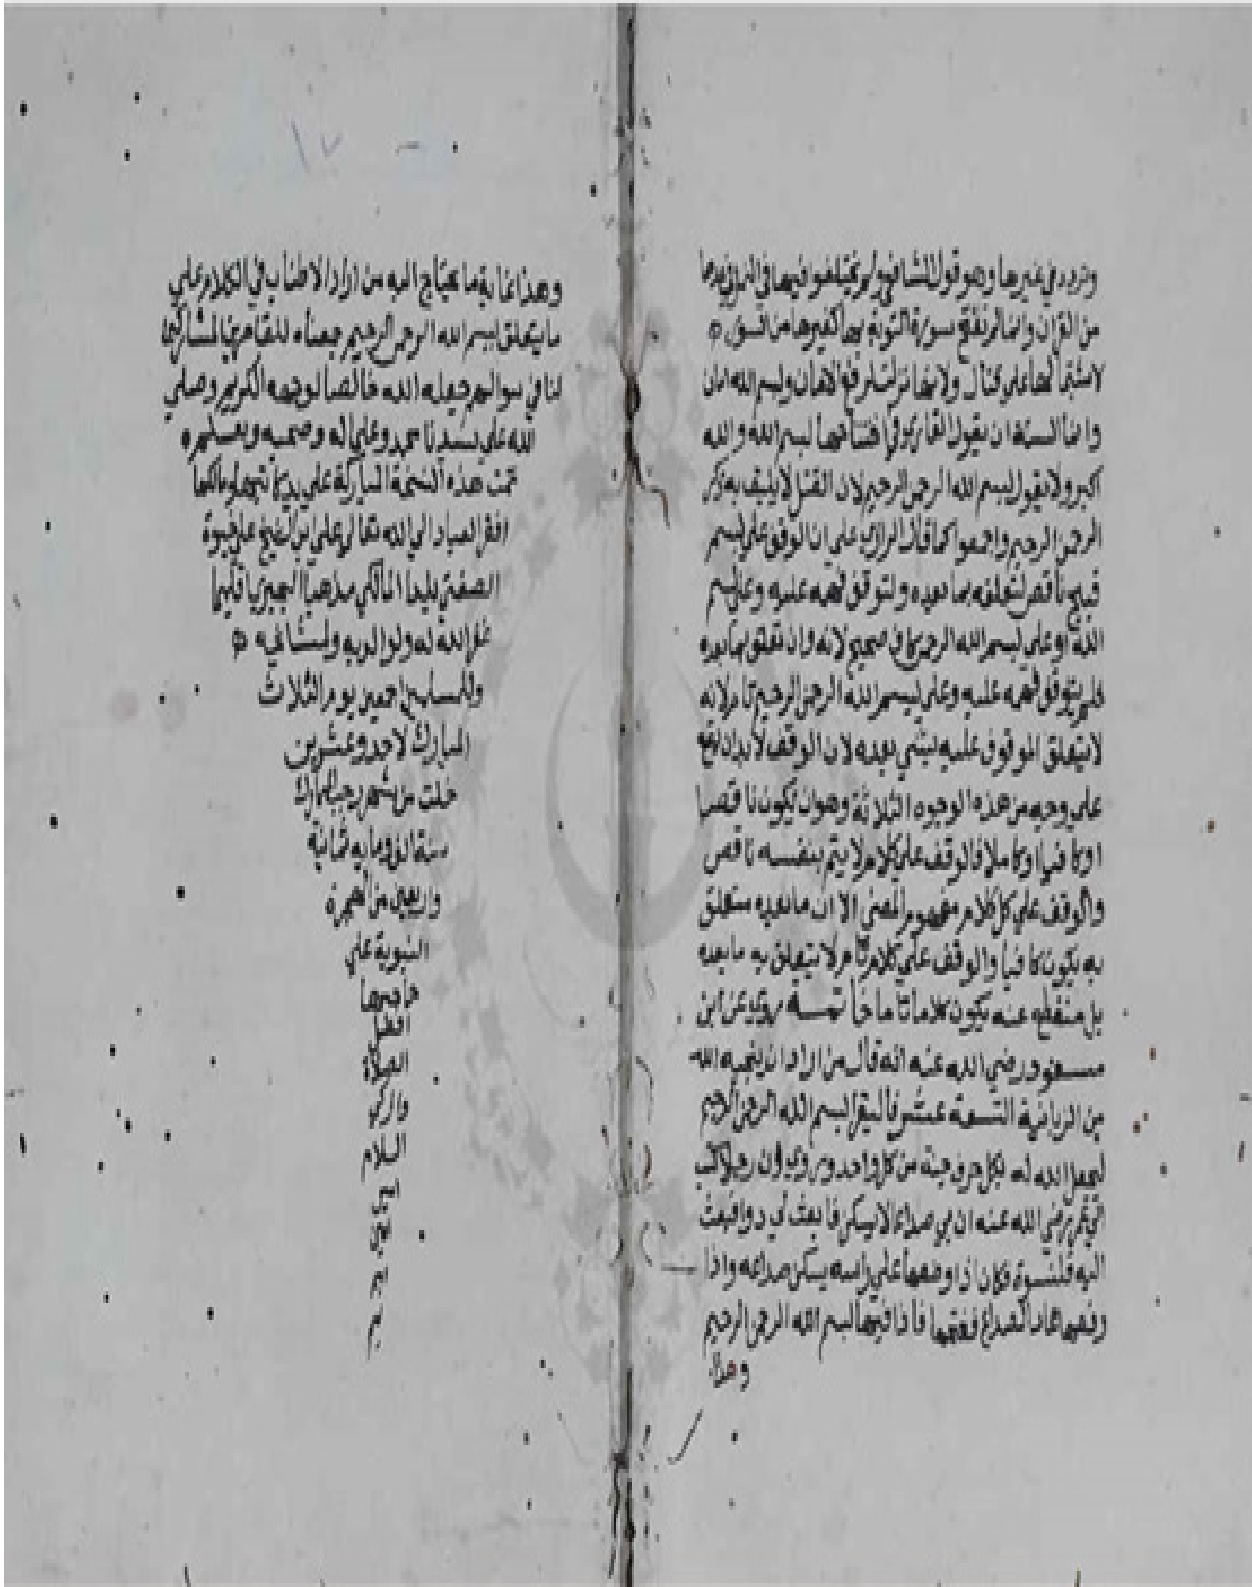 وتردد في غيرها وهو قول الشافعي ولم يختلفوا فيها في النمل بعدها
من القران وانما لم تفتح سورة التوبة بها كغيرها من السور
لاشتمالها على قتال ولانها نزلت لرفع الامان وبسم الله امان
وايضا السنة ان يقول القاري في افتتاحها بسم الله والله
اكبر ولا يقول بسم الله الرحمن الرحيم لان القتل لا يليق به ذكر
الرحمن الرحيم واجمعوا كما قال الرازي على ان الوقف على بسم
قبيح ناقص لتعلقه بما بعده ولتوقف فهمه عليه وعلى بسم
الله او على بسم الله الرحمن كافي صحيح لانه وان تعلق بما بعده
فلم يتوقف فهمه عليه وعلى بسم الله الرحمن الرحيم تام لانه
لا يتعلق الموقوف عليه بشي بعده لان الوقف لابد ان يقع
علي وجه من هذه الوجوه الثلاثة وهو ان يكون ناقصا
او كافيا او كاملا فالوقف علي كلام لا يتم بنفسه ناقص
والوقف علي كل كلام مفهوم المعنى الا ان ما بعده متعلق
به يكون كافيا والوقف علي كلام تام لا يتعلق به ما بعده
بل منقطع عنه يكون كلاما تاما خاتمة روي عن ابن
مسعود رضي الله عنه انه قال من اراد ان ينجيه الله
من الزبانية التسعة عشر فاليقرا بسم الله الرحمن الرحيم
ليجعل الله له بكل حرف جنة من كل واحد وروي ان رجلا كتب
الي عمر رضي الله عنه ان بي صداعا لا يسكن فابعث لي دوا فبعث
اليه قلنسوة فكان اذا وضعها علي راسه يسكن صداعه واذا
رفعها عاد الصداع ففتحها فاذا فيها بسم الله الرحمن الرحيم
وهذا
١٧
وهذا غاية ما يحتاج اليه من اراد الاطناب في الكلام علي
ما يتعلق ببسم الله الرحمن الرحيم جمعناه للقاصرين المشاركين
لنا في سوالهم جعله الله خالصا لوجهه الكريم وصلي
الله علي سيدنا محمد وعلي اله وصحبه وسلم
تمت هذه النسخة المباركة علي يد كاتبها ومالكها
افقر العباد الي الله تعالي علي ابن الشيخ علي
الصفتي بلدا المالكي مذهبا
غفر الله له ولوالديه ولمشايخه
وللمسلمين اجمعين يوم الثلاث
المبارك لاحد وعشرين
خلت من شهر رجب المبارك
سنة الف ومايه ثمانية
واربعين من الهجرة
النبوية علي
صاحبها
افضل
الصلاة
وازكي
السلام
امين
امين